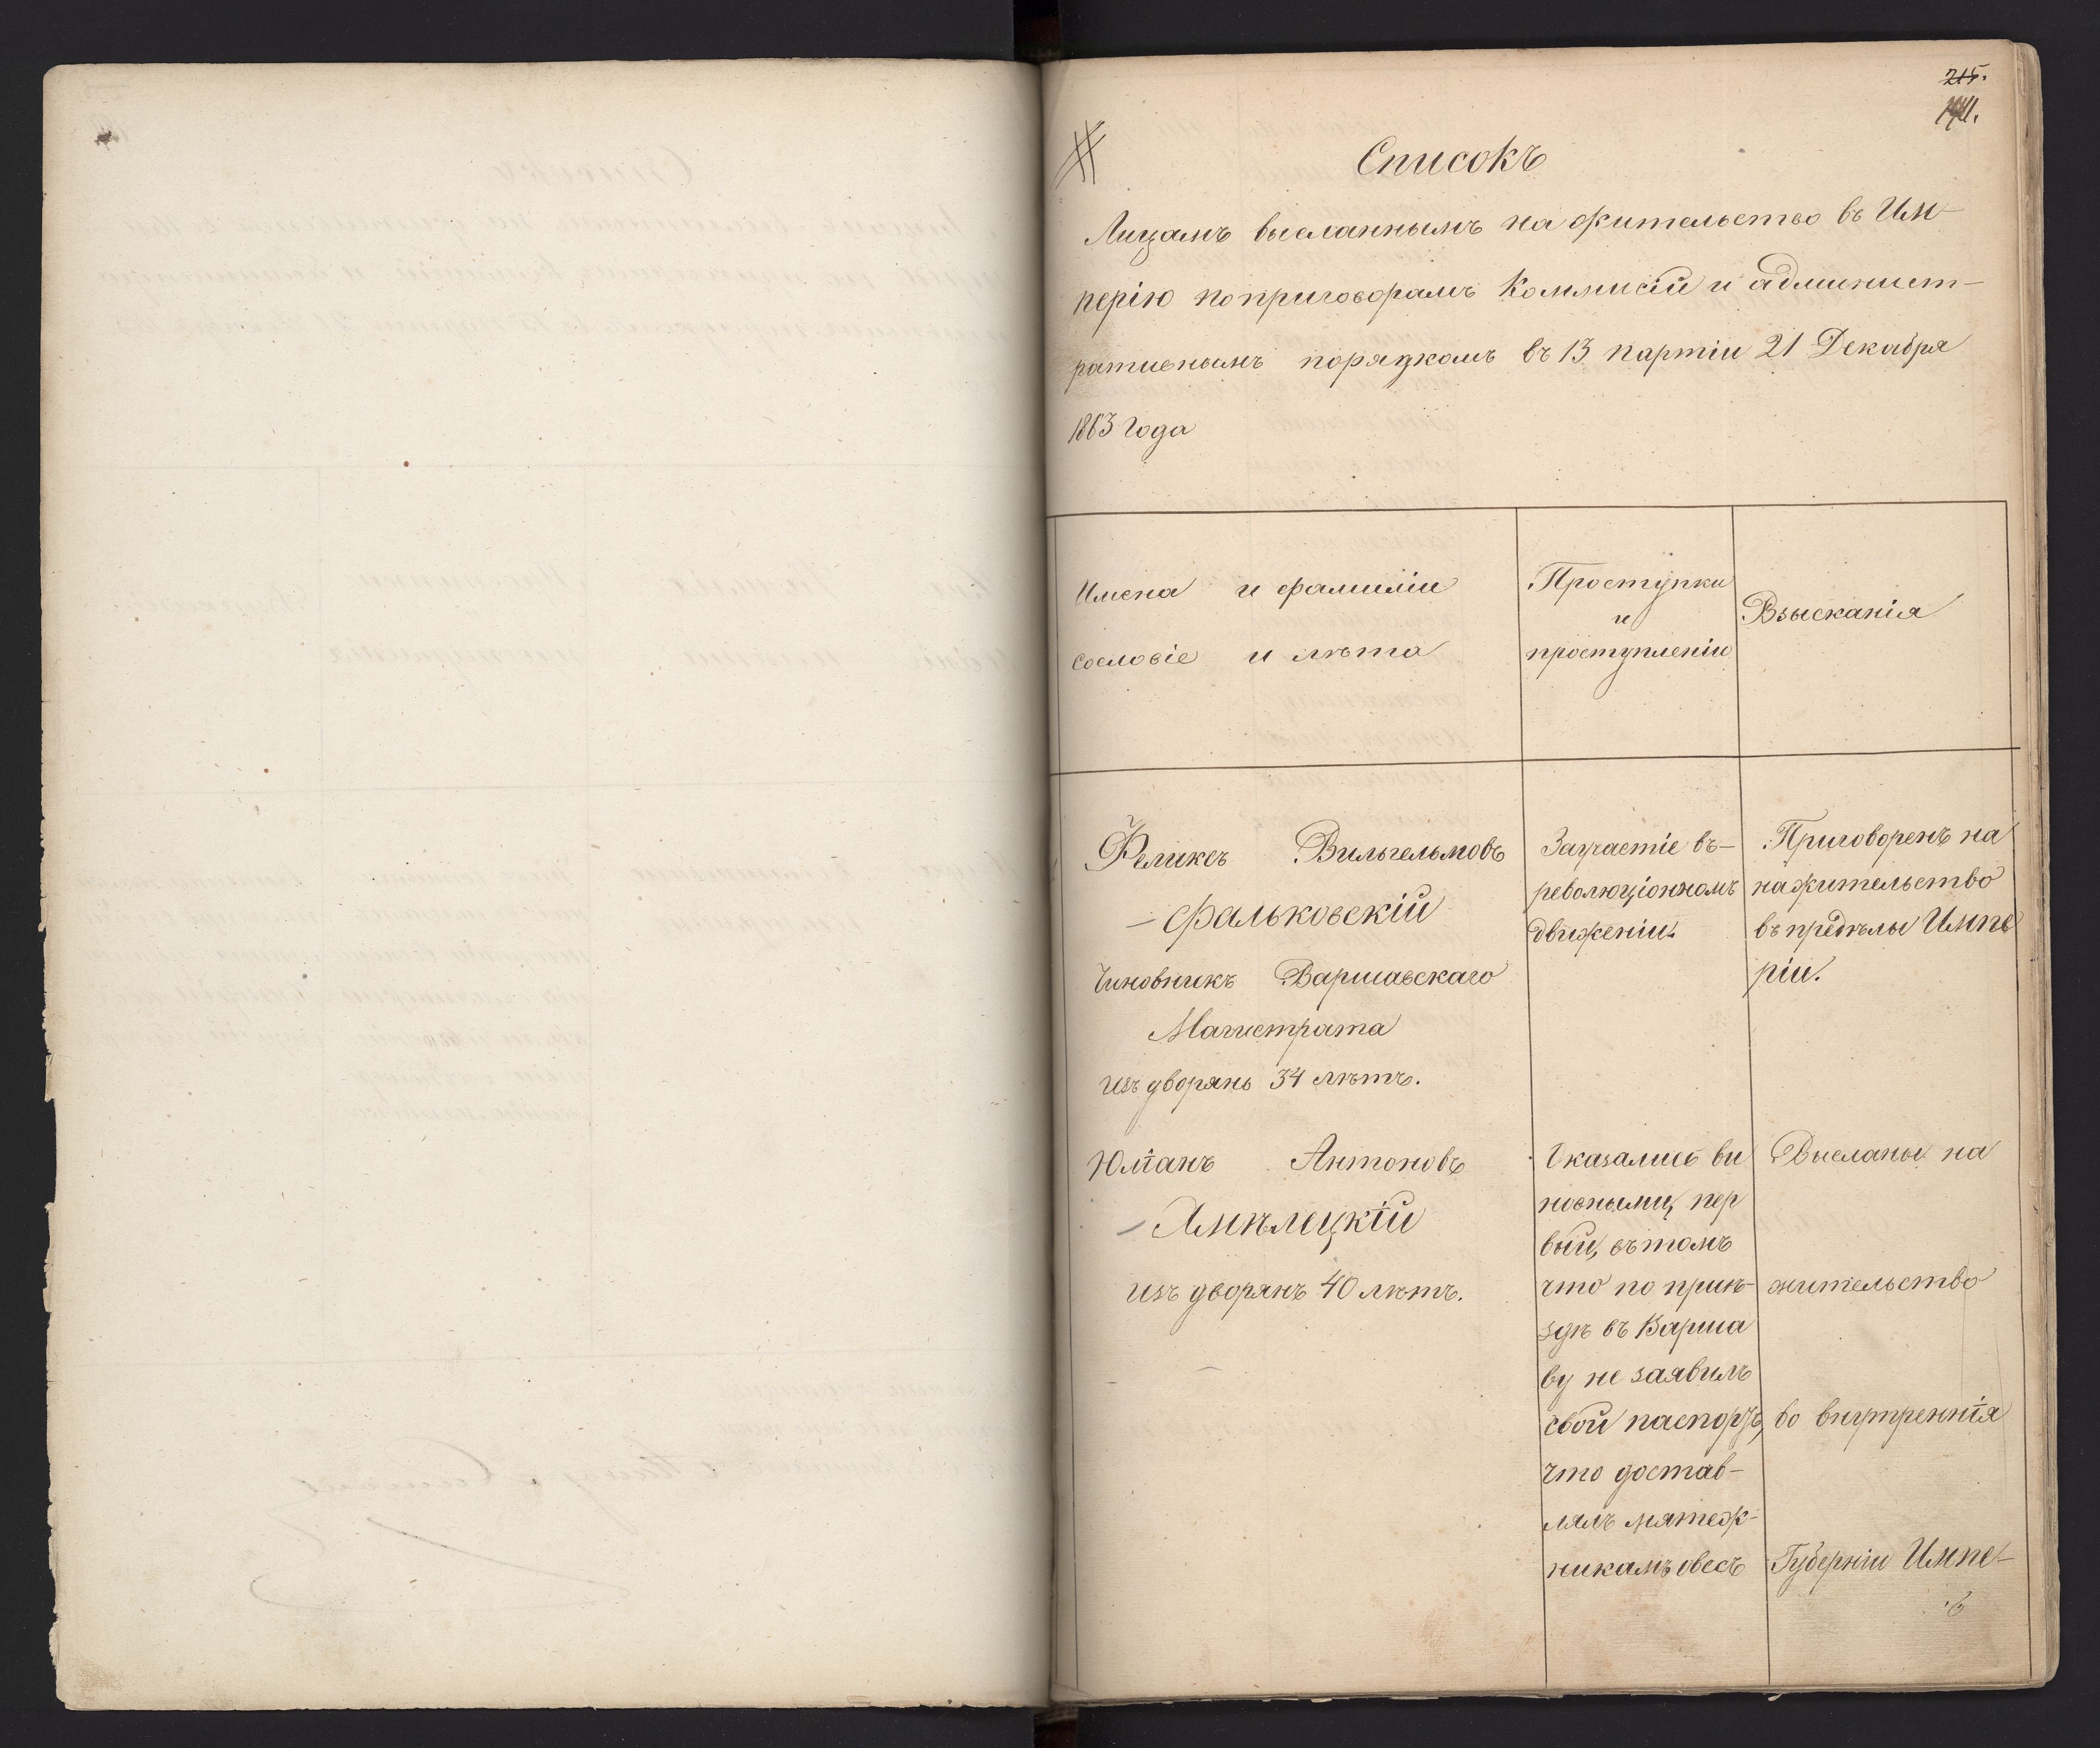 215.
Списокъ
Лицамъ высланнымъ на жительство въ Им-
перію по приговорамъ Коммисій и админист-
ративнымъ порядкомъ въ 13 партіи 21 Декабря
1863 года
Имена и фамиліи
сословіе и лѣта
Проступки
и
проступленіи
Взысканія
Феликсъ Вильгельмовъ
— Фальковскій
Чиновникъ Варшавскаго
Магистрата
изъ дворянъ 34 лѣтъ.
За участіе въ-
революціонномъ
движеніи.
Приговоренъ на
на жительство
въ предѣлы Импе
ріи.
Юліанъ Антоновъ
изъ дворянъ 40 лѣтъ.
Оказались ви
новными, пер
вый, въ томъ
что по пріѣ-
здѣ въ Варша
ву не заявилъ
свой паспортъ,
что достав-
лялъ мятеж-
никамъ овесъ
Высланы на
жительство
во внутреннія
Губерніи Импе-